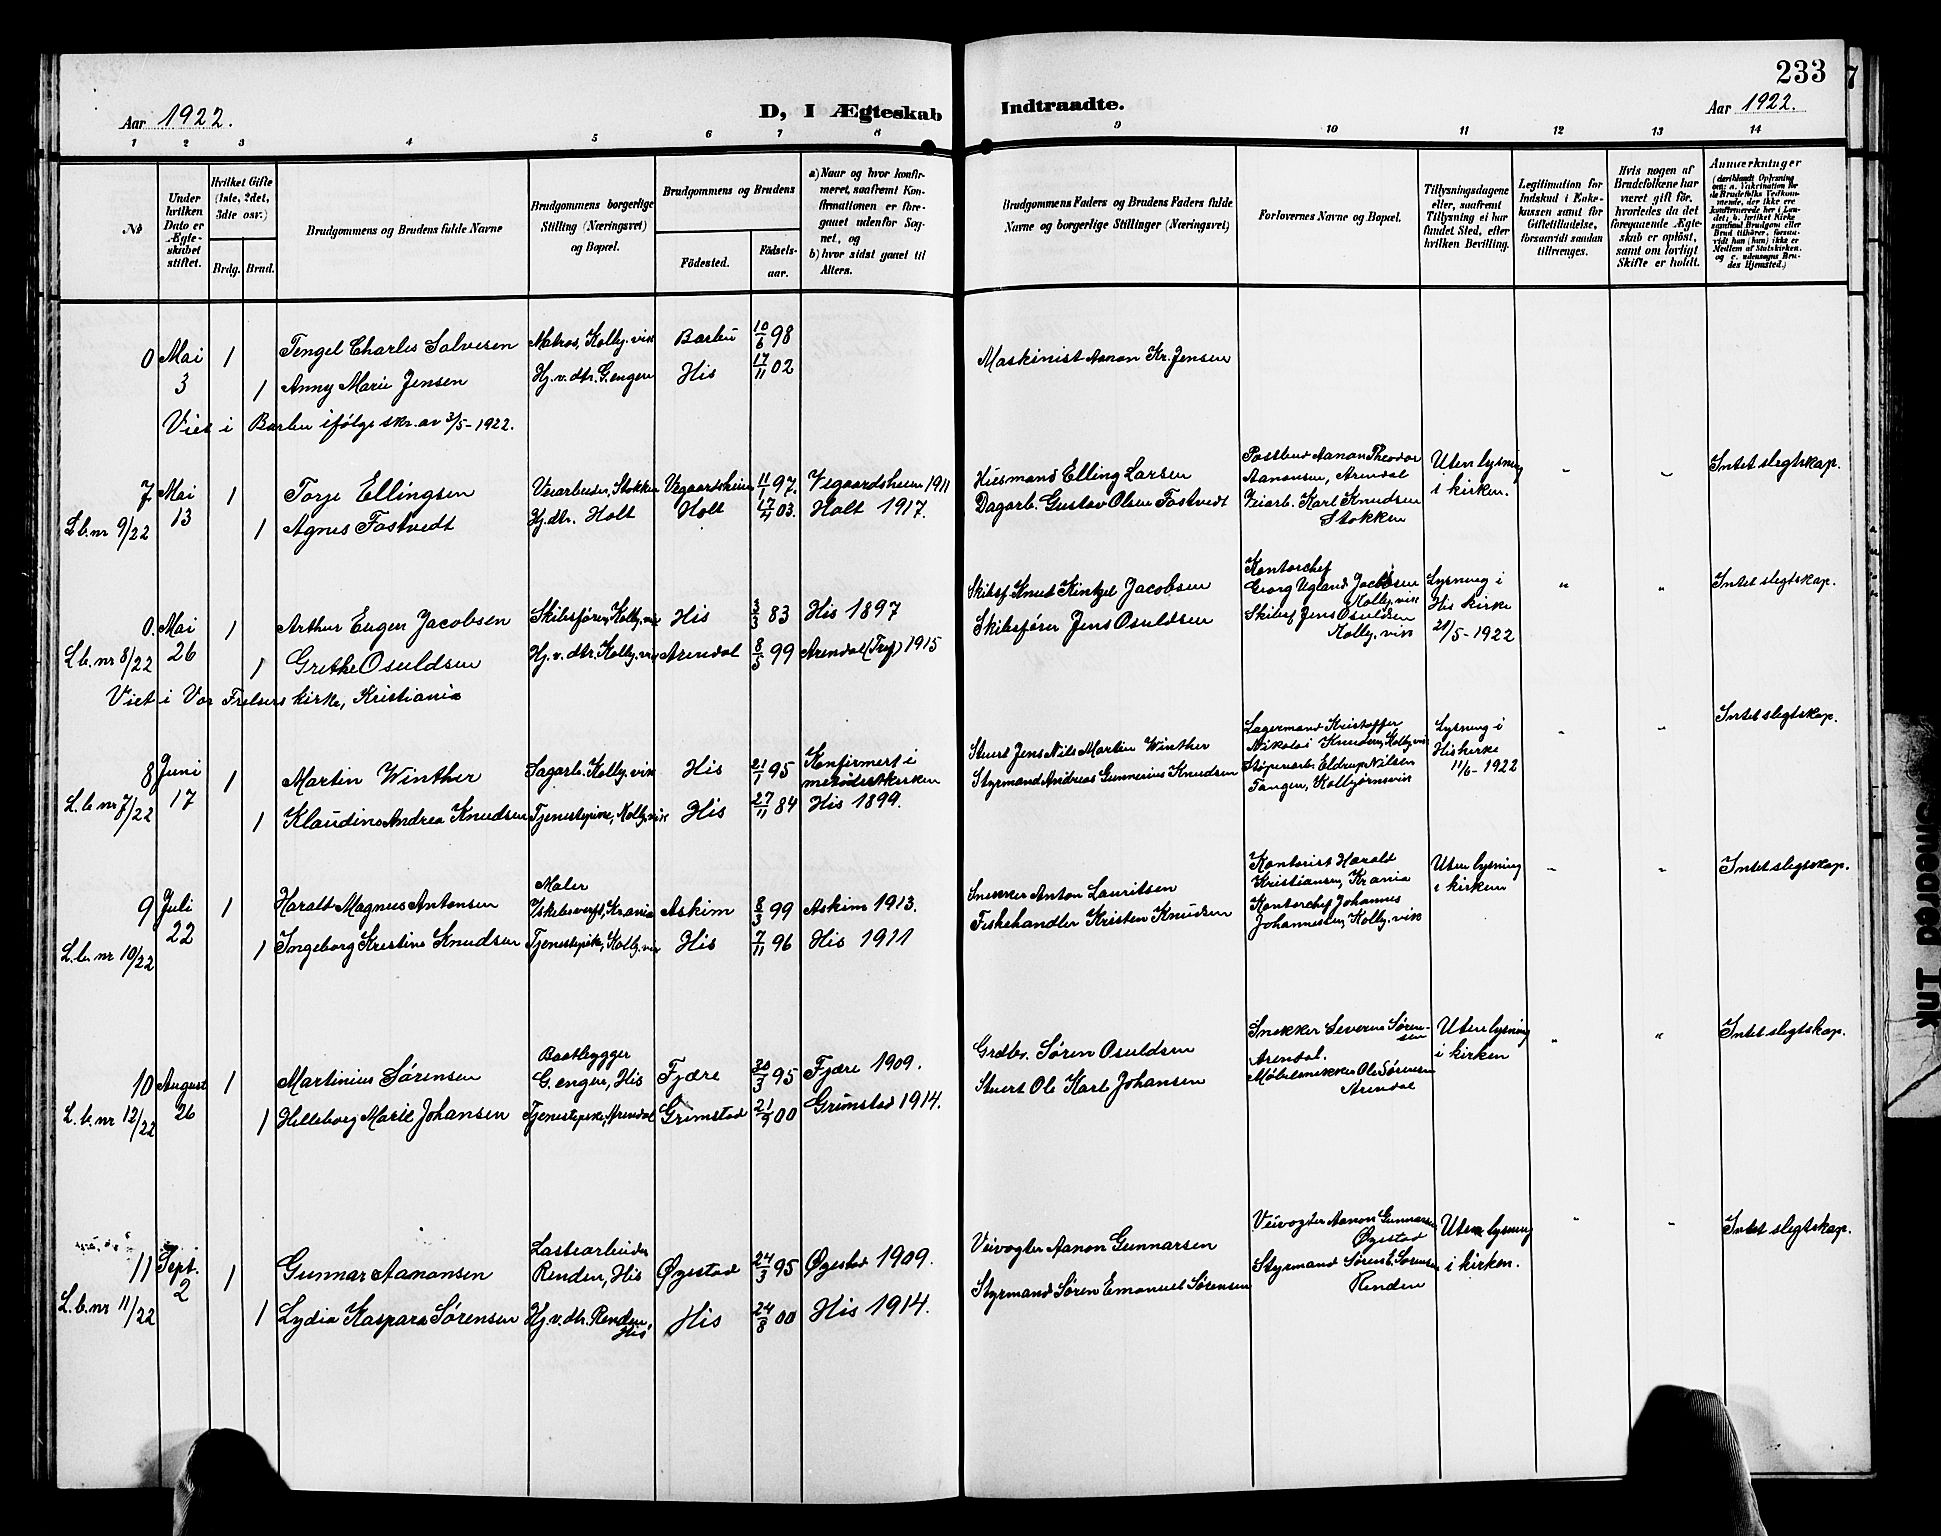 233
Aar 1922.
D, I Ægteskab
Indtraadte.
Aar 1922.
1 2 3 4 5 6 7 8
9 10 11 12 13 14
№
Under hvilken Dato er Ægteskabet stiftet.
Hvilket Gifte (1ste, 2det, 3die osr.)
Brdg. Brud.
Brudgommens og Brudens fulde Navne
Brudgommens borgerlige Stilling (Næringsvei) og Bopæl.
Brudgommens og Brudens
Födested.
Födsels-aar.
a) Naar og hvor konfirmeret, saafremt Konfirmationen er foregaaet udenfor Sognet, og
b) hvor sidst gaaet til Alters.
Brudgommens Faders og Brudens Faders fulde Navne og borgerlige Stillinger (Næringsvei)
Forlovernes Navne og Bopæl.
Tillysningsdagene eller, saafremt Tillysning ei har fundet Sted, efter hvilken Bevilling.
Legitimation for Indskud i Enkekassen samt for Giftetilladelse, forsaavidt saadan tiltrænges.
Hvis nogen af Brudefolkene har været gift för, hvorledes da det foregaaende Ægteskab er oplöst, samt om lovligt Skifte er holdt.
Anmærkninger
0 Mai 1 Tengel Charles Salvesen Matros, Kolby.vik Barbu 10/6 98
3 1 Anny Marie Jensen Hj.v.dtr. G.engen His 17/11 02 Maskinist Aanon Kr. Jensen
Viet i Barbu ifølge skr. av 3/5-1922.
7 Mai 1 Torje Ellingsen Veiarbeider, Stokken Vegaardsheien 11/1 97. Vegaardsheien 1911 Husmand Elling Larsen Postbud Aanon Theodor Aanonsen, Arendal Uten lysning i kirken. " " Intet slegtskap.
L.b.nr 9/22 13 1 Agnes Fostvedt Hj.dtr. Holt Holt 17/11 03. Holt 1917. Dagarb. Gustav Olsen Fostvedt Veiarb. Karl Knudsen Stokken
0. Mai 1 Arthur Eugen Jacobsen Skibsfører, Kolby.vik His 83 His 1897 Skibsf. Knud Kintzel Jacobsen Kontorchef Georg Ugland Jacobsen Kolby.vik Lysning i His kirke 21/5-1922 " " Intet slegtskap.
L.b.nr 8/22 26 1 Grethe Osuldsen Hj.v.dtr. Kolby.vik Arendal 8/5 99 Arendal (Tref) 1915 Skibsfører Jens Osuldsen Skibsf Jens Osuldsen Kolby.vik
Viet i Vor Frelsers kirke, Kristiania
8 Juni 1 Martin Winther Sagarb. Kolby.vik His 21/1 95 Konfirmert i metodistkirken Stuert Jens Nils Martin Winther Lagermand Kristoffer Nikolai Knudsen, Kolby.vik Lysning i His kirke 11/6-1922 " " Intet slegtskap.
L.b.nr 7/22 17 1 Klaudine Andrea Knudsen Tjenestepike, Kolby.vik His 27/11 84 His 1899. Styrmand Andreas Gunnerius Knudsen Støperiarb. Eldrup Nilsen Tangen, Kolbjørnsvik
9 Juli 1 Harald Magnus Antonsen Maler v/skibsverft, Krania Askim 8/3 99 Askim 1913. Snekker Anton Lauritsen Kontorist Harald Kristiansen, Krania Uten lysning i kirken " " Intet slegtskap.
L.b.nr 10/22 22 1 Ingeborg Kristine Knudsen Tjenestepike, Kolby.vik His 7/11 96 His 1911 Fiskehandler Kristen Knudsen Kontorchef Johannes Johannesen, Kolby.vik
10 August 1 Martinius Sørensen Baatbygger G.engen, His Fjære 30/3 95 Fjære 1909. Grdbr. Søren Osuldsen Snekker Severin Sørensen Arendal. Uten lysning i kirken " " Intet slegtskap.
L.b.nr 12/22 26 1 Helleborg Marie Johansen Tjenestepike, Arendal Grimstad 21/9 00 Grimstad 1914. Stuert Ole Karl Johansen Møbelsnekker Ole Sørensen Arendal
11 Sept. 1 Gunnar Aanonsen Lastearbeider Renden, His Øyestad 24/3 95 Øyestad 1909. Veivogter Aanon Gunnarsen Veivogter Aanon Gunnarsen Øyestad Uten lysning i kirken. " " Intet slegtskap.
L.b.nr 11/22 2 1 Lydia Kaspara Sørensen Hj.v.dtr. Renden, His His 24/8 00 His 1914. Styrmand Søren Emanuel Sørensen Styrmand Søren E. Sørensen Renden
Smeared Ink